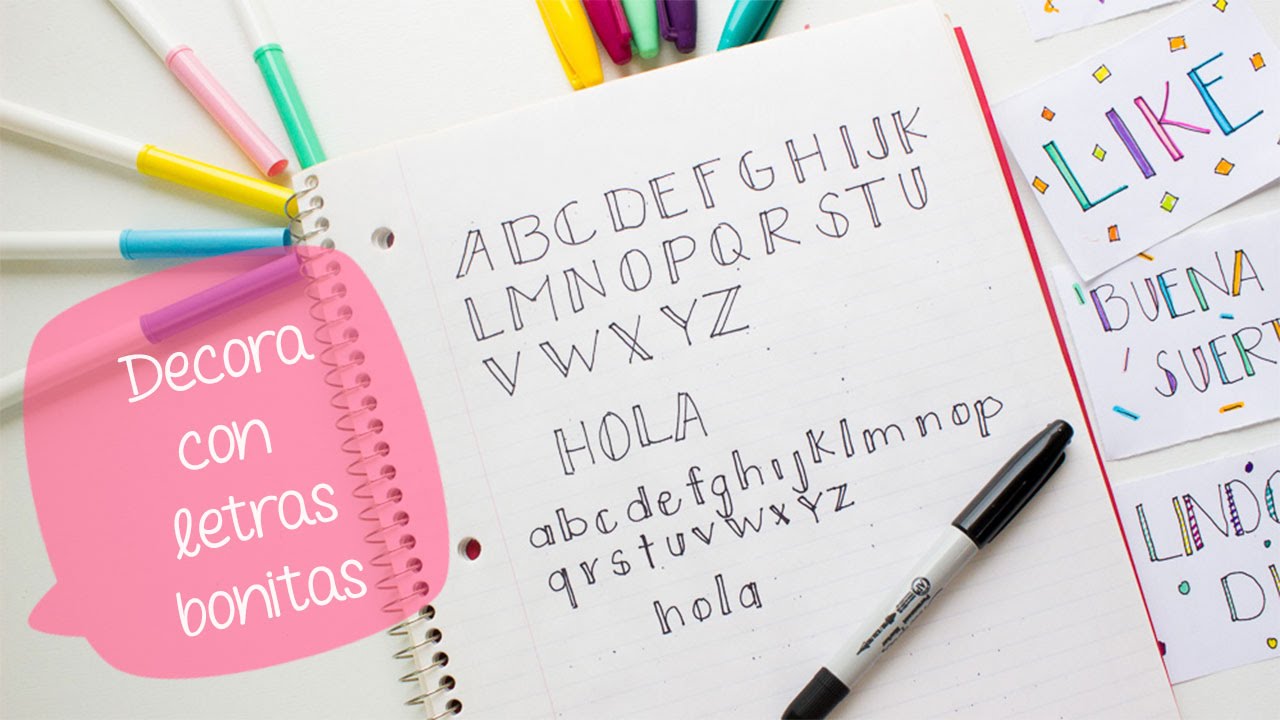 Decora
con
letras
bonitas
ABCDEFGHIJK
LMNOPQRSTU
VWXYZ
HOLA
abcdefghijklmnop
qrstuvwxyz
hola
LIKE
BUENA